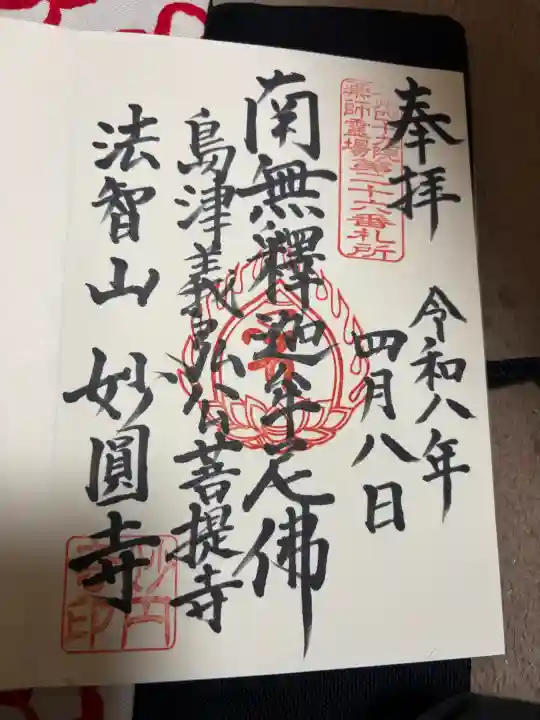 奉拝
九州四十九院
薬師霊場第二十六番札所
令和八年
四月八日
南無釋迦牟尼佛
島津義弘公菩提寺
法智山 妙圓寺
妙円
寺印